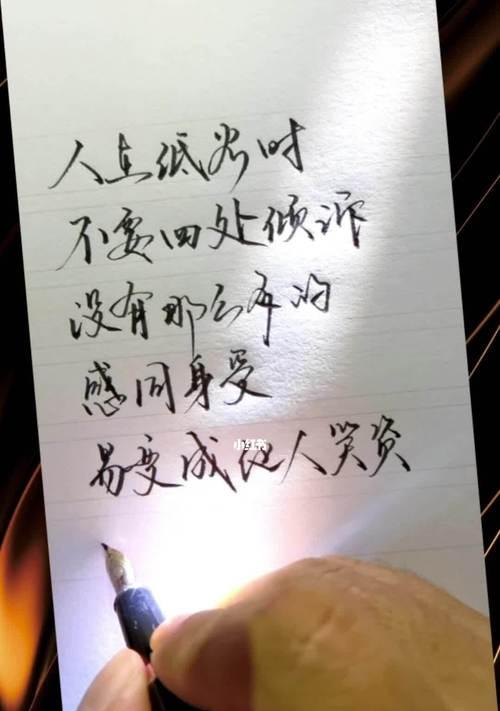 人在低谷时
不要四处倾诉
没有那么多的
感同身受
易变成他人笑资
小红书